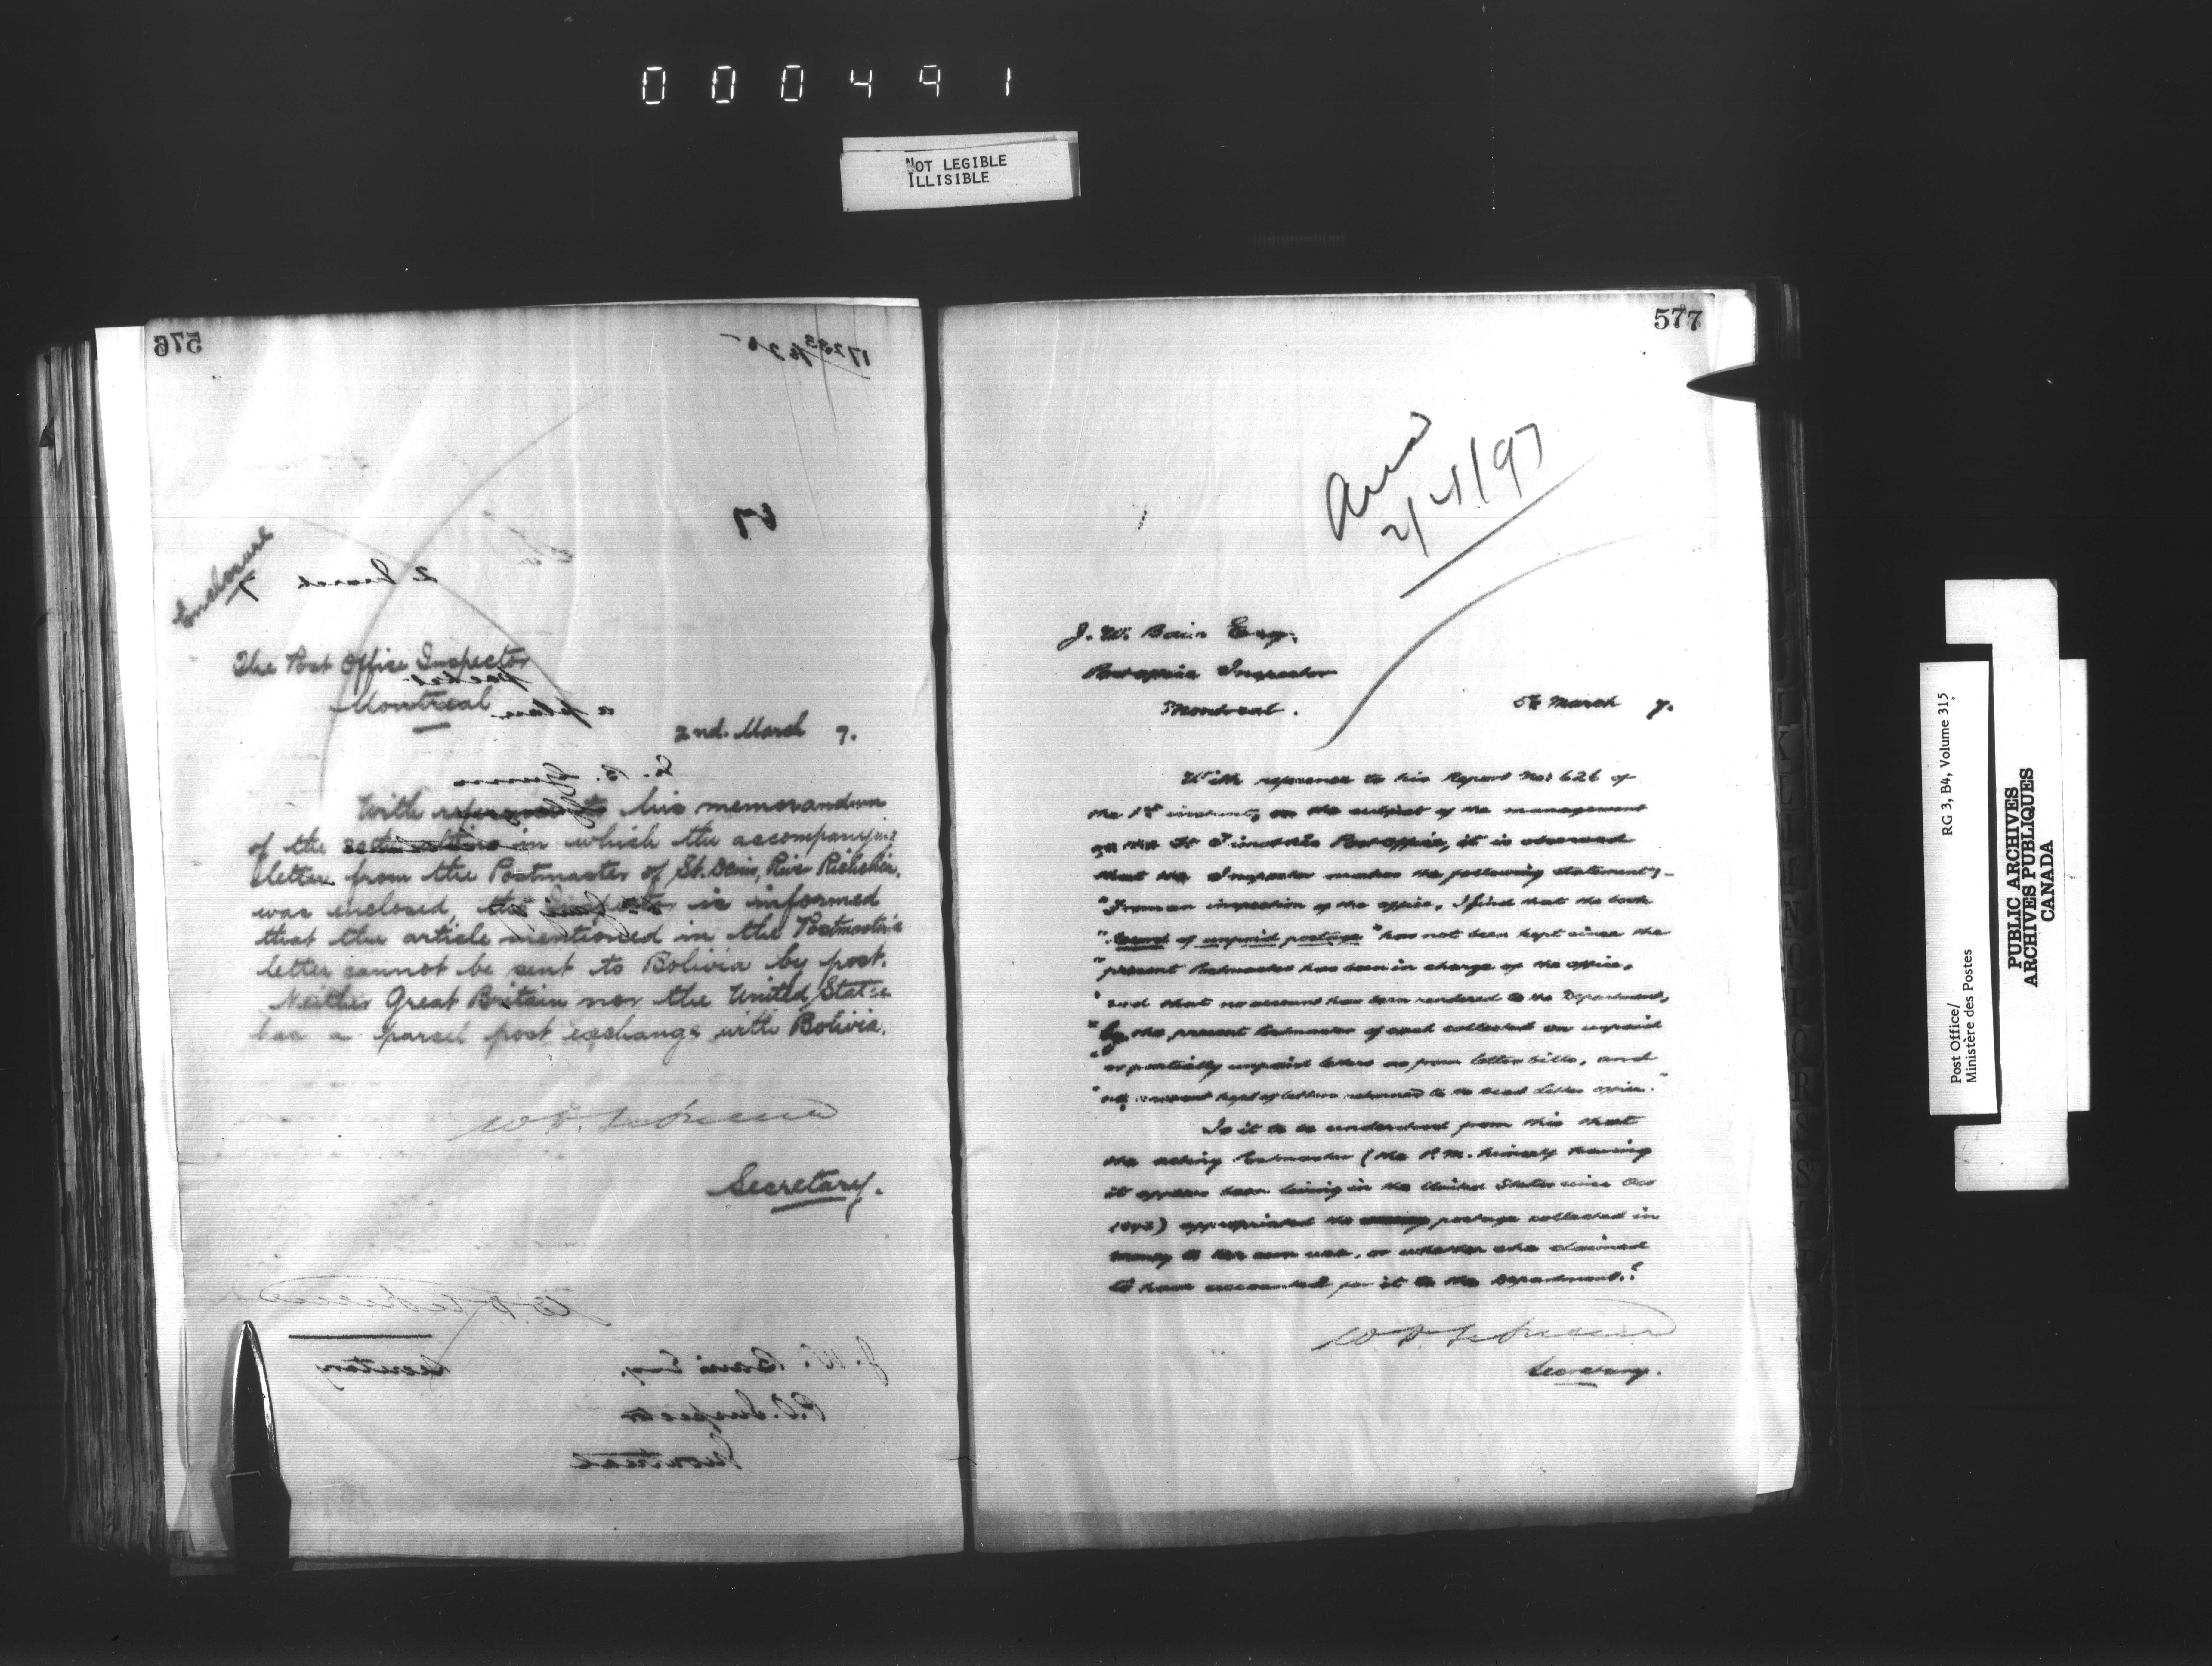 000491
NOT LEGIBLE
ILLISIBLE
576
Enclosure
The Post Office Inspector
Montreal
2nd. March 7.
With reference to his memorandum
of the in which the accompanying
letter from the Postmaster of St. Denis, River Richelieu,
was enclosed, the Inspector is informed
that the article mentioned in the Postmaster's
letter cannot be sent to Bolivia by post.
Neither Great Britain nor the United States
has a parcel post exchange with Bolivia.
Secretary.
W. D. LeSueur
Secretary
J. W. Bain Esq.
P.O. Inspector
Montreal
577
Ansd
2/4/97
J. W. Bain Esq.
Post office Inspector
Montreal.
5th March 7.
With reference to his Report No: 626 of
the 1st instant, on the subject of the management
of the St Post office, it is observed
that the Inspector makes the following statement:-
"From an inspection of the office, I find that the book
"Record of unpaid postage" has not been kept since the
"present Postmaster has been in charge of the office,
"and that no account has been rendered to the Department,
"by the present Postmaster of cash collected on unpaid
"or partially unpaid letters as from letter bills, and
"no account kept of letters returned to the dead letter office."
Is it to be understood from this that
the acting Postmaster (the P.M. himself having
it appears been living in the United States since
) appropriated the postage collected in
money to her own use, or whether she claimed
to have accounted for it to the Department.?
W D LeSueur
Secretary.
Post Office/ RG 3, B4, Volume 315
Ministère des Postes
PUBLIC ARCHIVES
ARCHIVES PUBLIQUES
CANADA